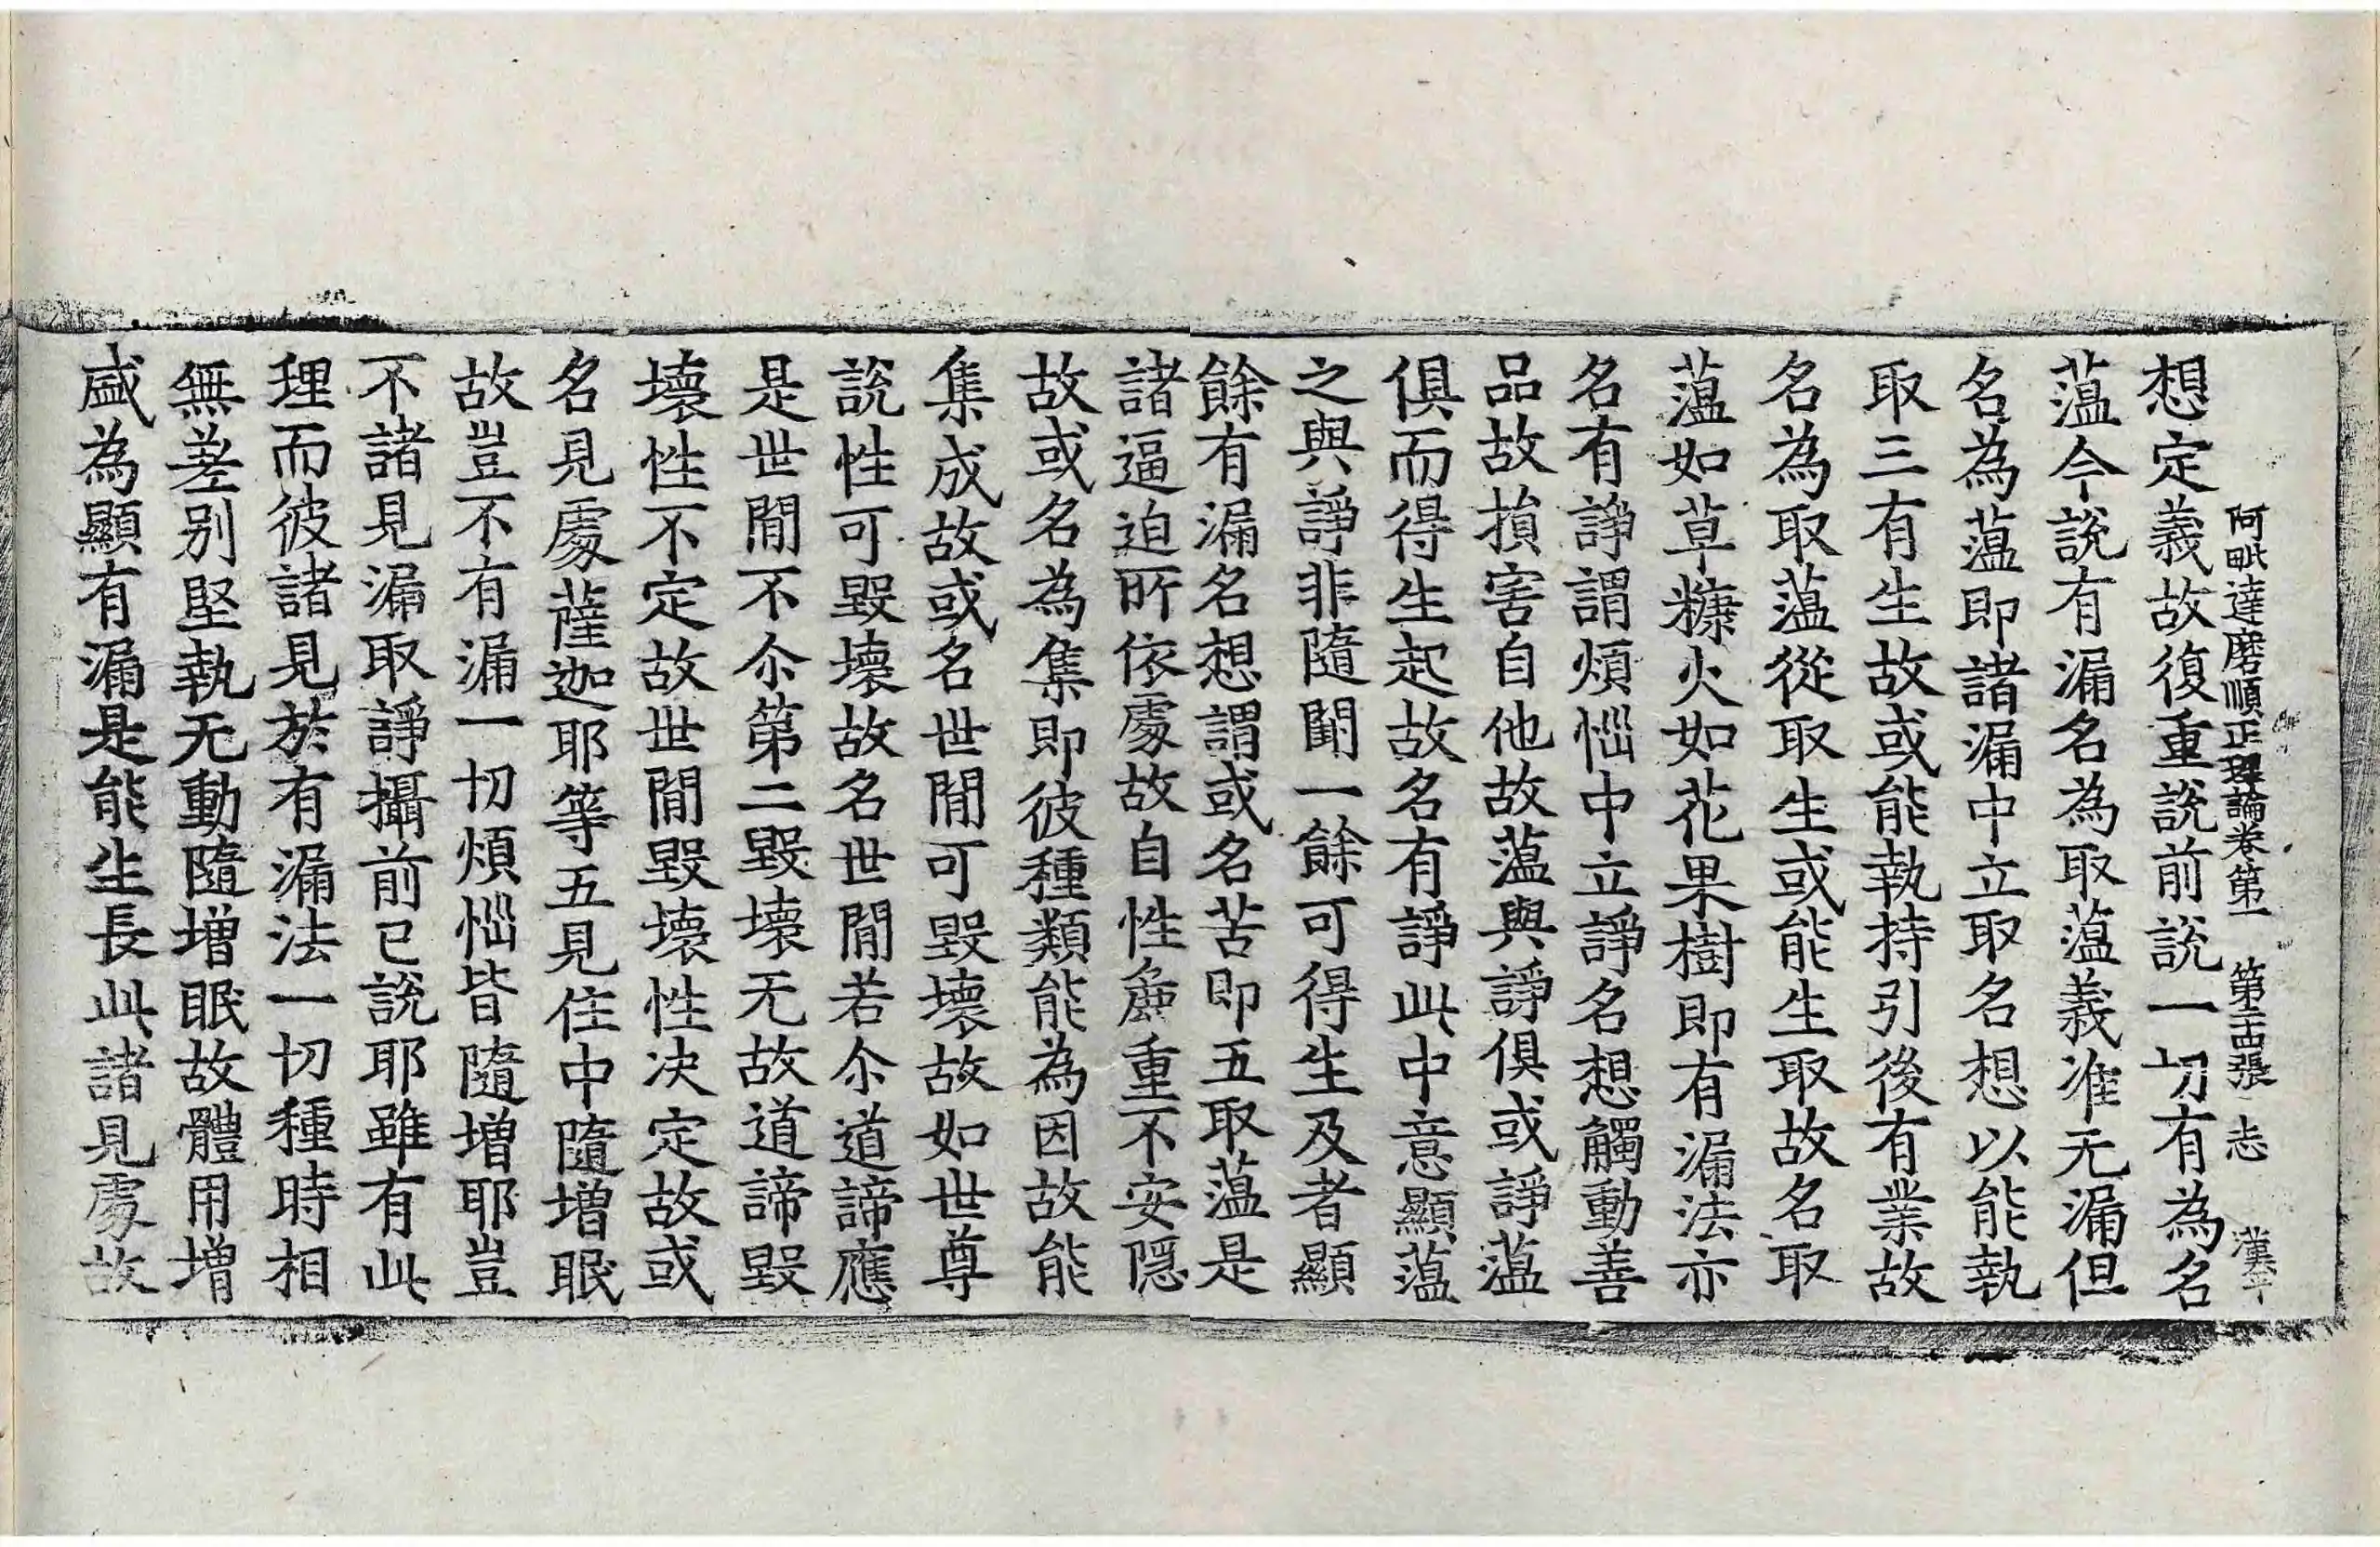 阿毗達磨順正理論卷第一 第二十四張 志 漢千
想定義故復重說前說一切有為名
薀今說有漏名為取薀義准无漏但
名為薀即諸漏中立取名想以能執
取三有生故或能執持引後有業故
名為取薀從取生或能生取故名取
薀如草糠火如花果樹即有漏法亦
名有諍謂煩惱中立諍名想觸動善
品故損害自他故薀與諍俱或諍薀
俱而得生起故名有諍此中意顯薀
之與諍非隨闕一餘可得生及者顯
餘有漏名想謂或名苦即五取薀是
諸逼迫所依處故自性麁重不安隱
故或名為集即彼種類能為因故能
集成故或名世間可毀壞故如世尊
說性可毀壞故名世間若尒道諦應
是世間不尒第二毀壞无故道諦毀
壞性不定故世間毀壞性決定故或
名見處薩迦耶等五見住中隨增眠
故豈不有漏一切煩惱皆隨增耶豈
不諸見漏取諍攝前已說耶雖有此
理而彼諸見於有漏法一切種時相
無差別堅執无動隨增眠故體用增
盛為顯有漏是能生長此諸見處故